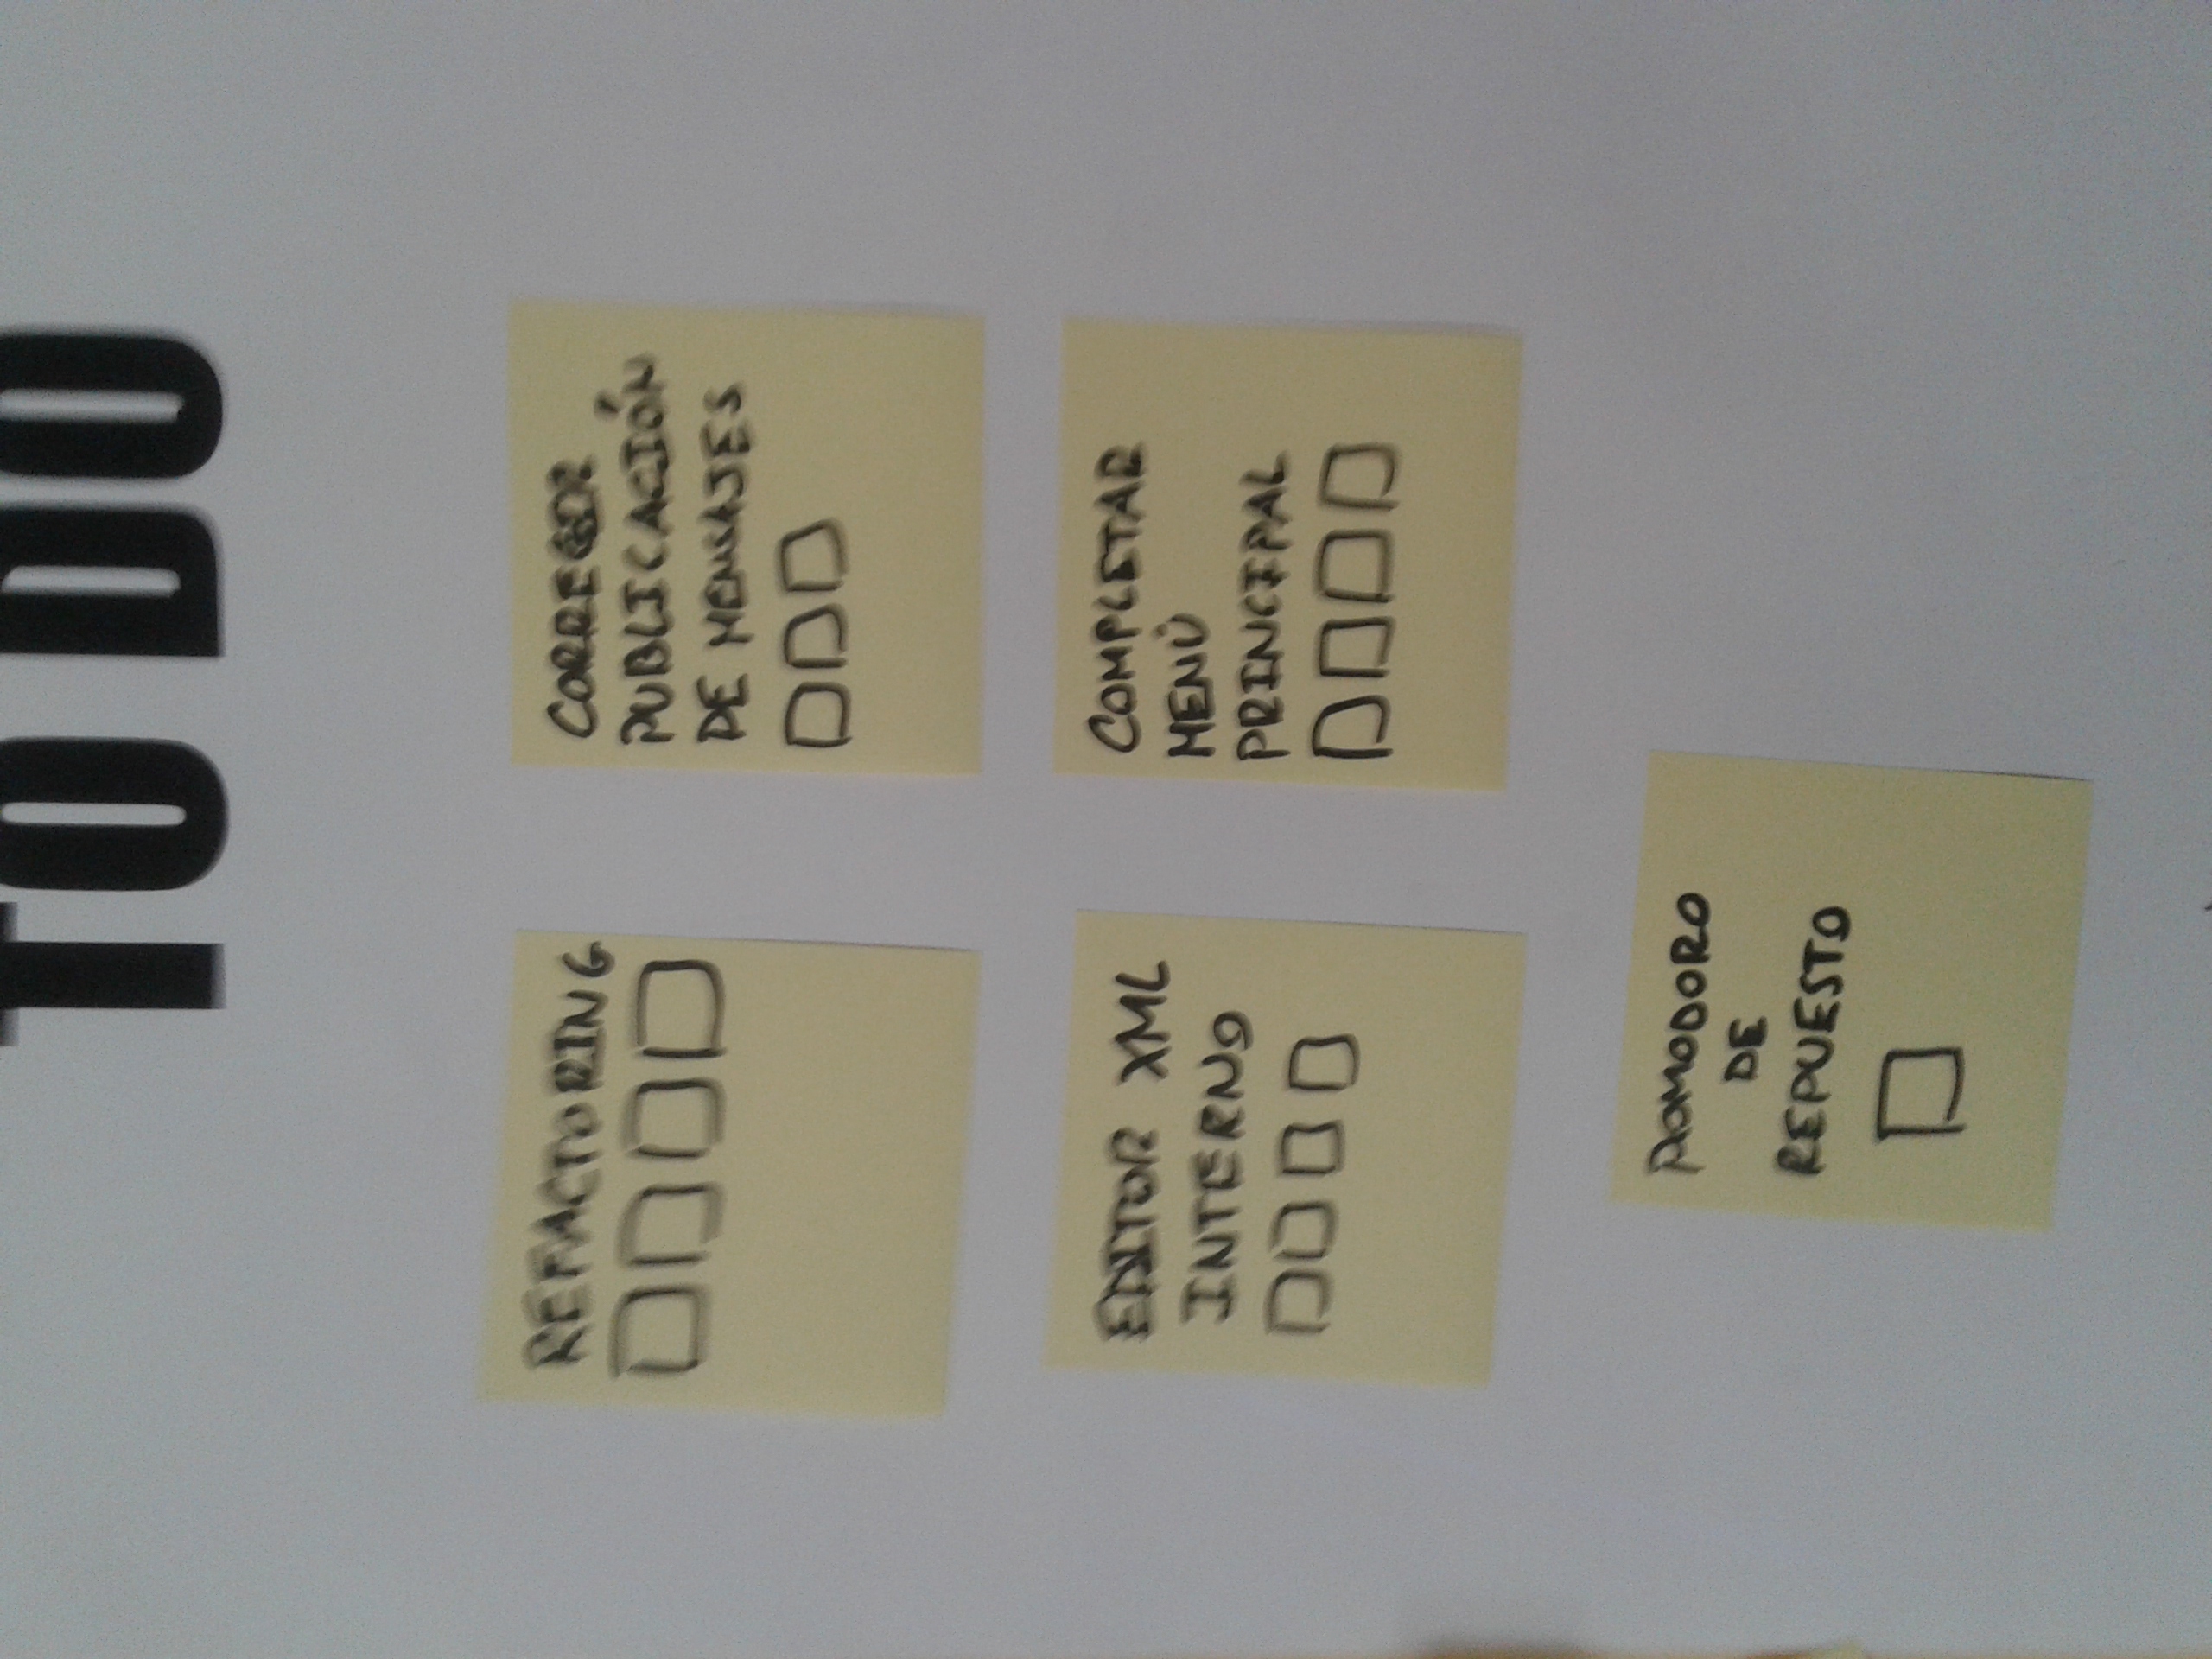 TO DO
REFACTORING
CORREGIR
PUBLICACIÓN
DE MENSAJES
EDITOR XML
INTERNO
COMPLETAR
MENÚ
PRINCIPAL
POMODORO
DE
REPUESTO